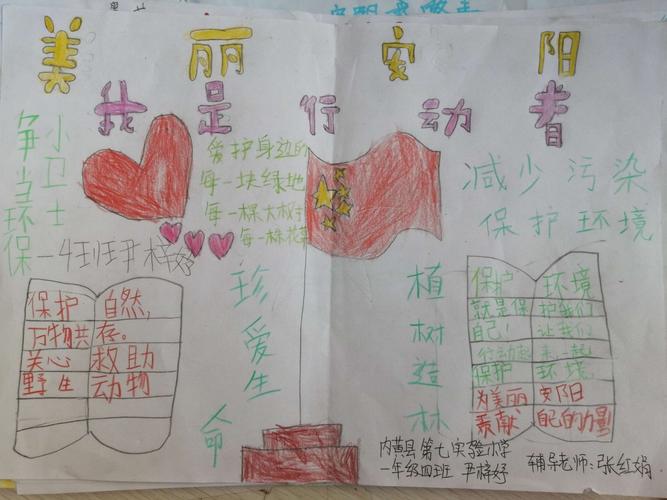 美丽安阳
我是行动者
争当环保
小卫士
一4班尹梓妤
爱护身边的
每一块绿地
每一棵大树
每一株花草
减少污染
保护环境
珍爱生命
植树造林
保护自然,
万物共存。
关心救助
野生动物
保护环境
就是保护我们
自己！让我们
行动起来一起
保护环境
为美丽安阳
贡献自己的力量
内黄县第七实验小学
一年级四班 尹梓妤
辅导老师:张红娟